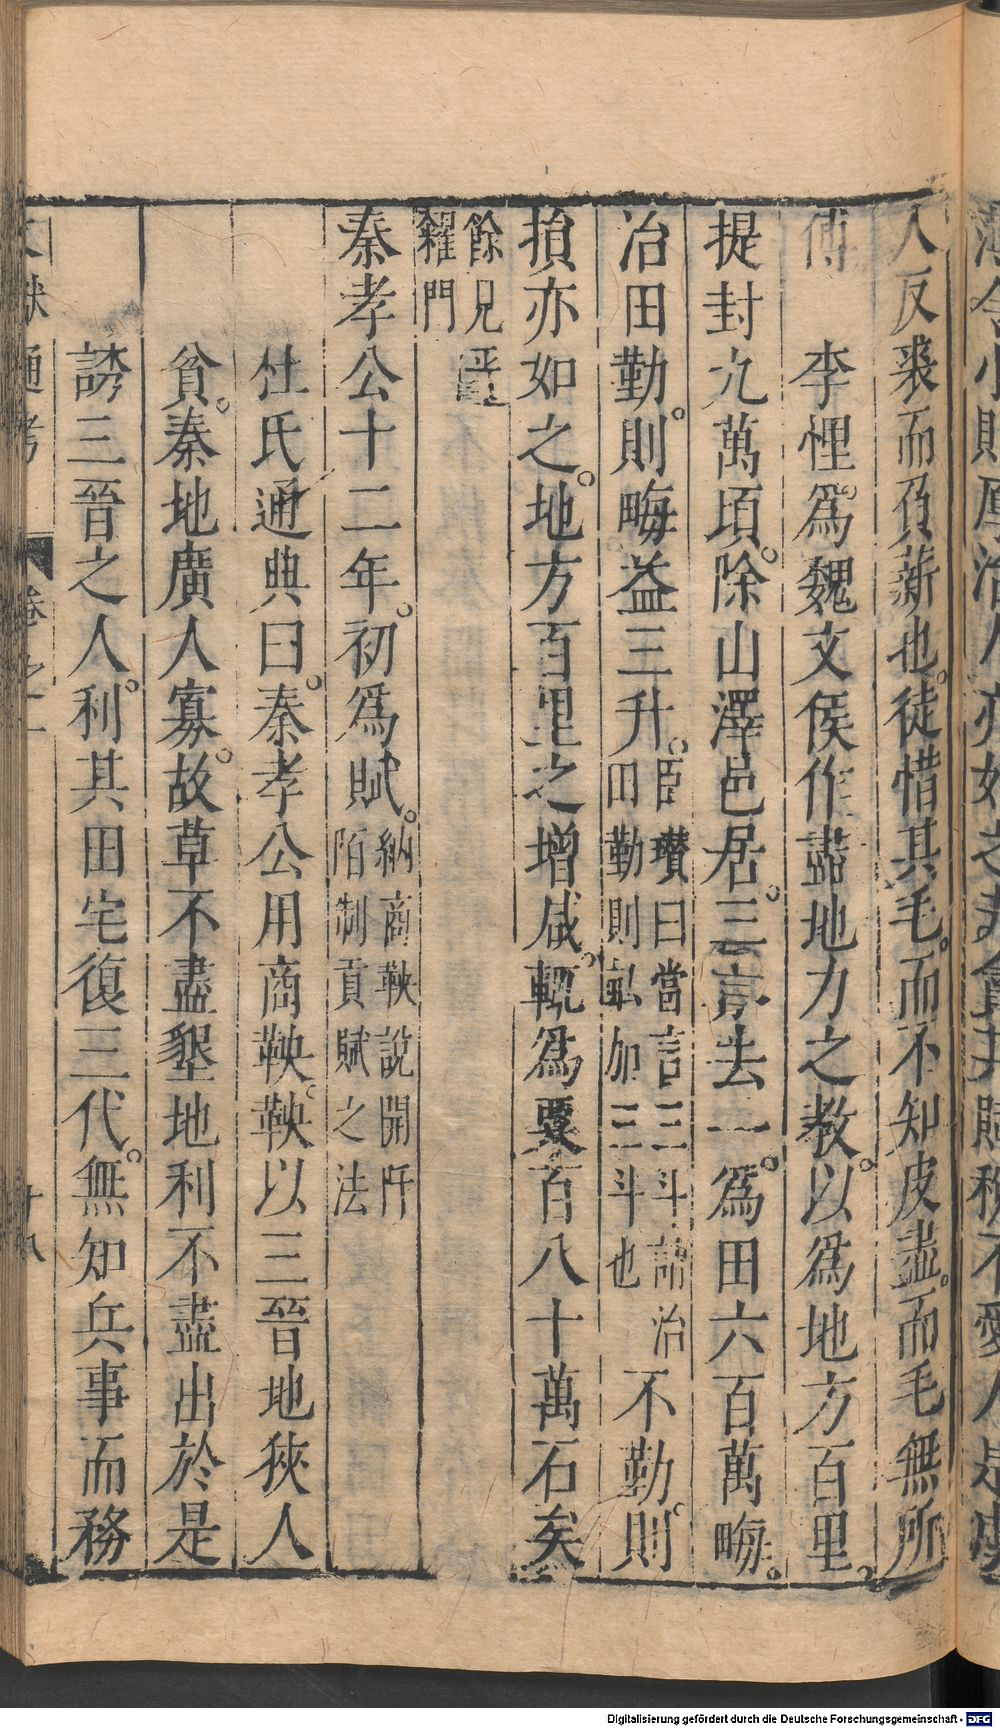 人反裘而負薪也徒惜其毛而不知皮盡而毛無所
傅　李悝爲魏文侯作盡地力之教以爲地方百里
提封九萬頃除山澤邑居三去一爲田六百萬畮
治田勤則畮益三升臣瓚曰當言三斗謂治田勤則畝加三斗也不勤則
損亦如之地方百里之增減輒爲粟百八十萬石矣
餘見糴門
秦孝公十二年初爲賦納商鞅說開阡陌制貢賦之法
杜氏通典曰秦孝公用商鞅鞅以三晉地狹人
貧秦地廣人寡故草不盡墾地利不盡出於是
誘三晉之人利其田宅復三代無知兵事而務
文獻通考　卷之一　十八
Digitalisierung gefördert durch die Deutsche Forschungsgemeinschaft - DFG